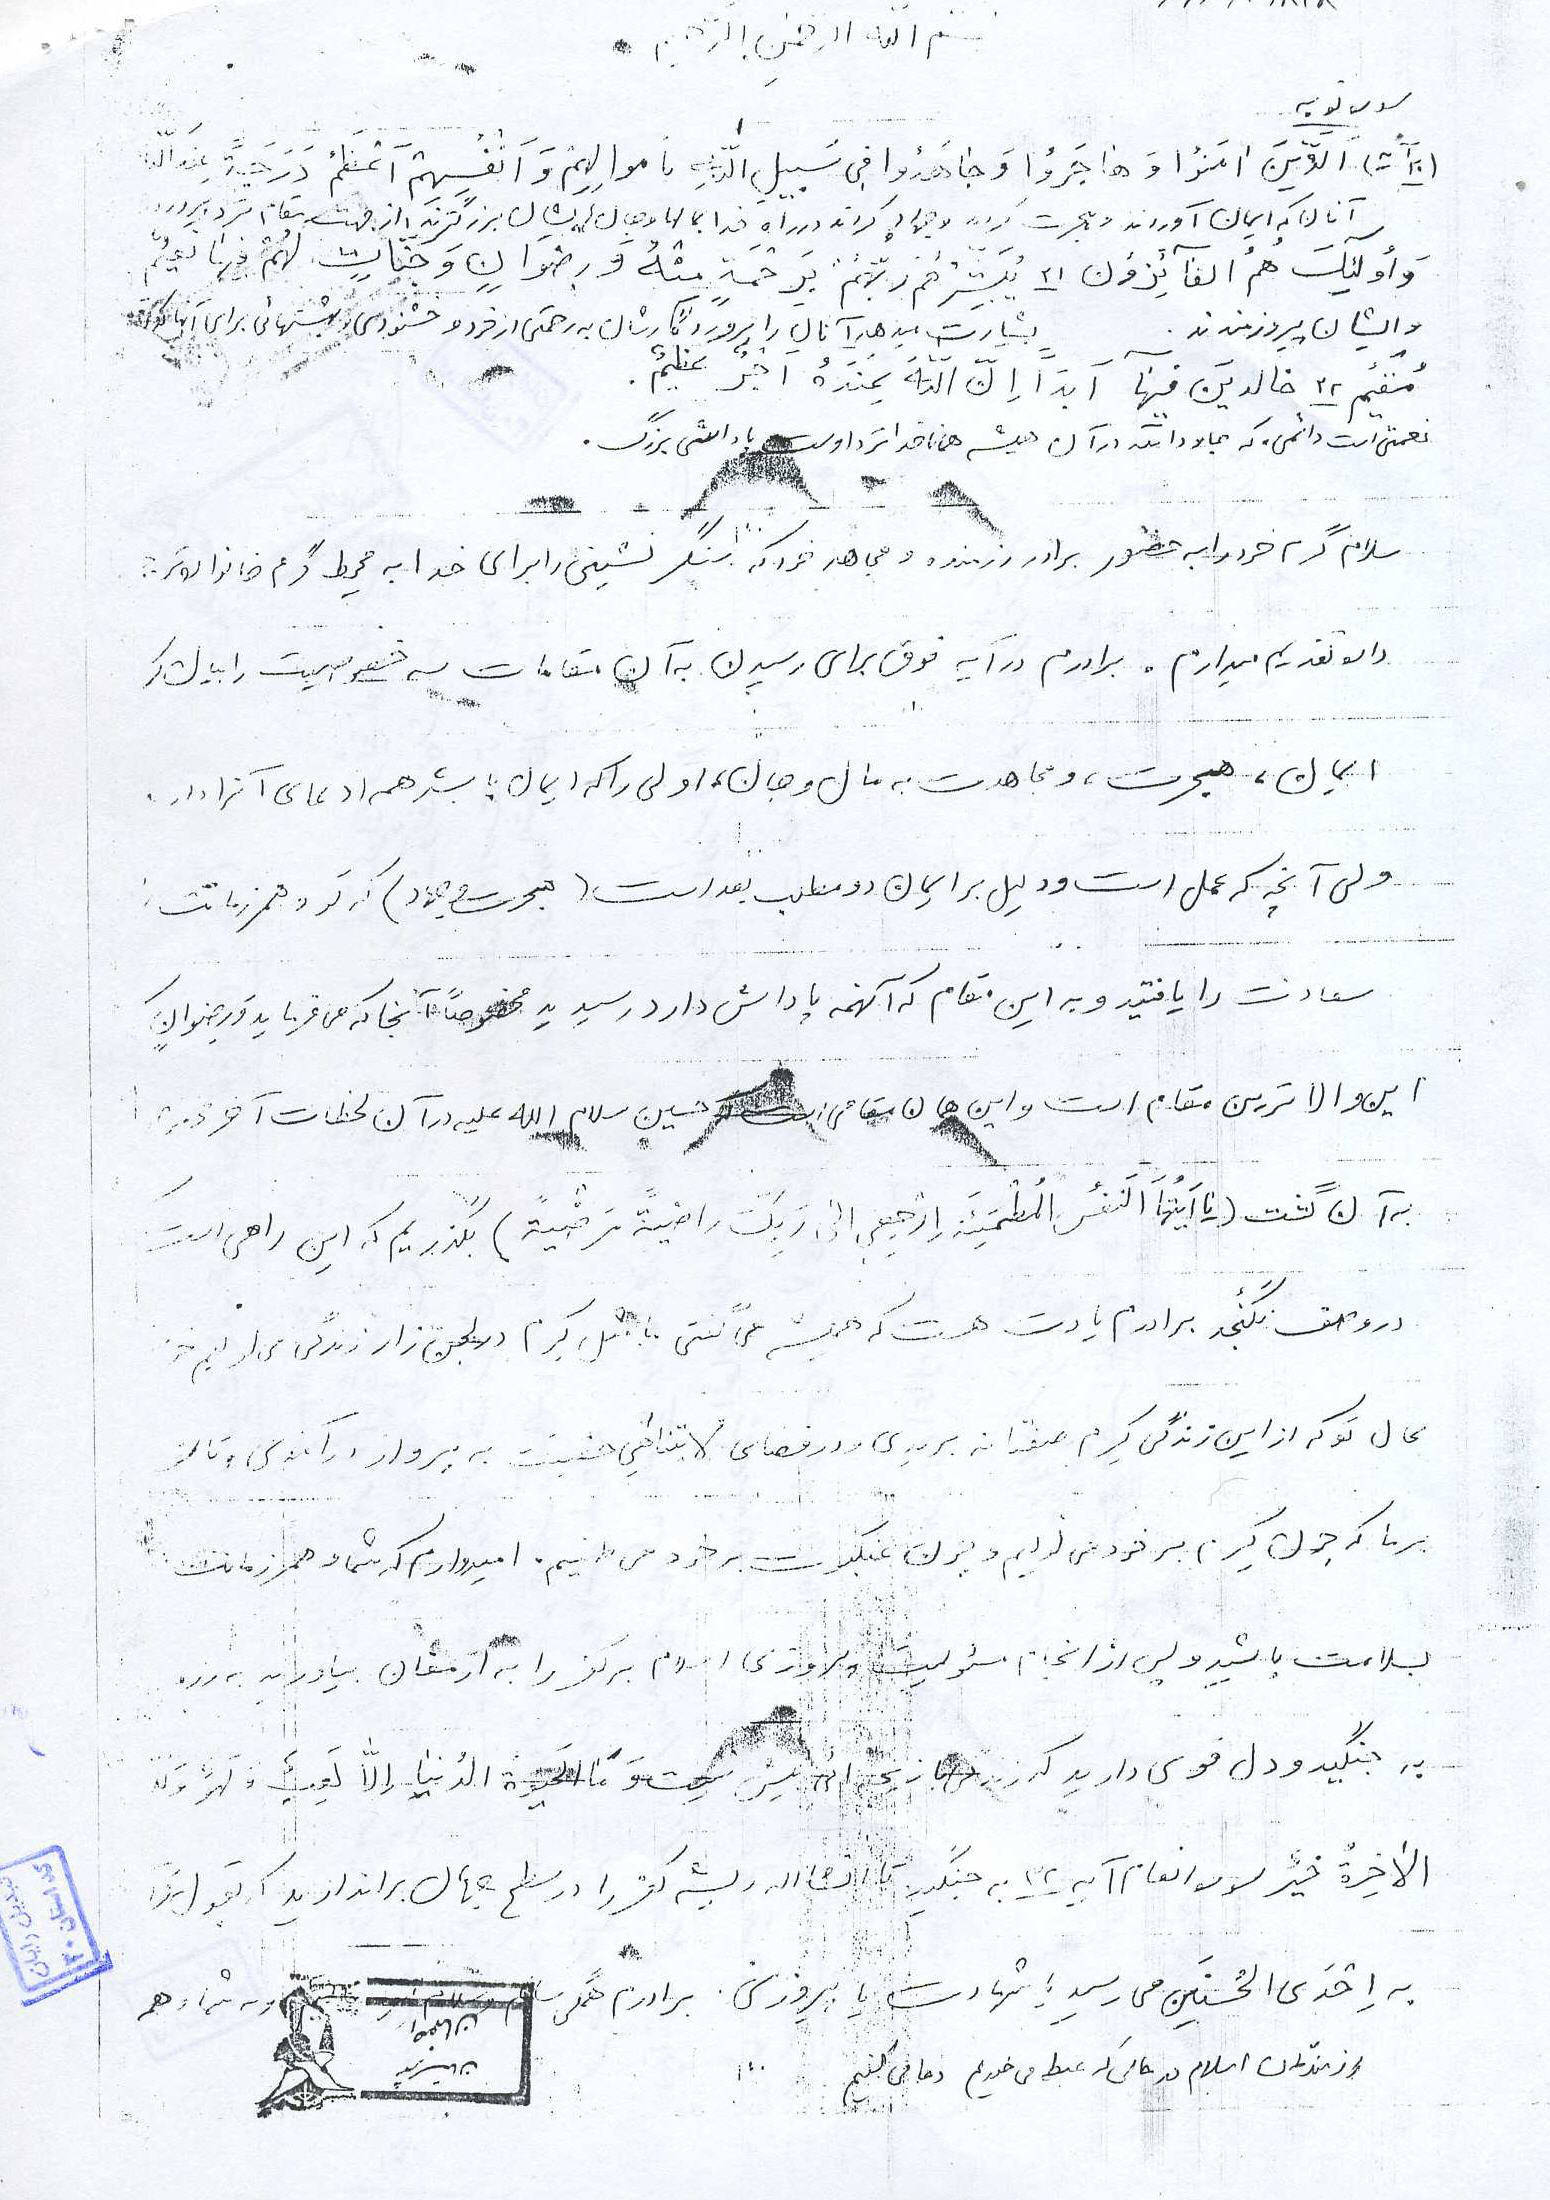 بسم الله الرحمن الرحیم
سوره توبه
(آیه ۲۰) اَلَّذینَ امَنُوا وَ هاجَرُوا وَ جاهَدُوا فِی سَبیلِ اللّهِ باموالِهِمْ وَ اَنْفُسِهِمْ اَعْظَمُ دَرَجَةً عِنْدَ اللّه
آنان که ایمان آوردند و هجرت کردند و جهاد کردند در راه خدا بمالها و جان ایشان بزرگترند از جهت مقام نزد پروردگار
وَ اُولئِکَ هُمُ الفآئِزوُن ۲۱ یُبَشِّرُهُمْ رَبُّهُمْ بِرَحْمَةٍ مِنْهُ وَ رِضْوَانٍ وَ جَنّاتٍ لَهُمْ فیها نَعیمٌ
و ایشان پیروزمندند . بشارت میدهد آنان را پروردگارشان به رحمتی از خود و خشنودی و بهشتهائی برای آنها که در
مُقیم ۲۲ خالدینَ فیهآ اَبَدَاً اِنّ اللّهَ عِنْدَهُ اَجْرٌ عظیمٌ .
نعمتی است دائمی که جاودانند در آن همیشه همانا خدا نزد اوست پاداشی بزرگ .
سلام گرم خود را به حضور برادر رزمنده و مجاهد خود که سنگر نشینی را برای خدا به محیط گرم خانواده ترجیح
داده تقدیم میدارم . برادرم در آیه فوق برای رسیدن به آن مقامات سه خصوصیت را بیان کرد
ایمان ، هجرت ، و مجاهدت به مال و جان ، اولی را که ایمان باشد همه ادعای آنرا دارند .
ولی آنچه که عمل است و دلیل بر ایمان دو مطلب بعد است ( هجرت و جهاد ) که تو و همرزمانت
سعادت را یافتید و به این مقام که آنهمه پاداش دارد رسیدید مخصوصاً آنجا که می فرماید وَ رِضوانٍ که
این والاترین مقام است و این همان مقامی است که حسین سلام الله علیه در آن لحظات آخر
به آن گشت (یا اَیَّتُهَا النَفْسُ المُطْمَئِنَّه اِرْجِعی الی رَبِّکَ راضیةً مَرْضیةً) بگذریم که این راهی است
در وصف نگنجد برادرم یادت هست که همیشه می گفتی ما مثل کرم در لجن زار زندگی می لولیم
بحال تو که از این زندگی کِرم صفتانه بریدی و در فضای لایتناهی حقیقت به پرواز در آمدی و
بر ما که چون کِرم بر خود می لولیم و چون عنکبوت بر خود می تنیم . امیدوارم که شما و همرزمانت
بسلامت باشید و پس از انجام مسئولیت پیروزی اسلام بر کفر را به ارمغان بیاورید
به جنگید و دل قوی دارید که زندگی بازیچه ای بیش نیست وَ مَا الحَیوةُ الدُنیا اِلّا لَعِبٌ وَ لَهْوٌ وَ لَلدار
الاخِرةُ خَیْرٌ سوره انعام آیه ۳۲ به جنگید تا انشااله ریشه کفر را در سطح جهان براندازید که بقول قرآن
به اِحْدَی الحُسنَیَین می رسید یا شهادت یا پیروزی . برادرم همگی سلام و به شما و هم
رزمندگان اسلام در حالی که غبطه می خوریم دعا می کنیم